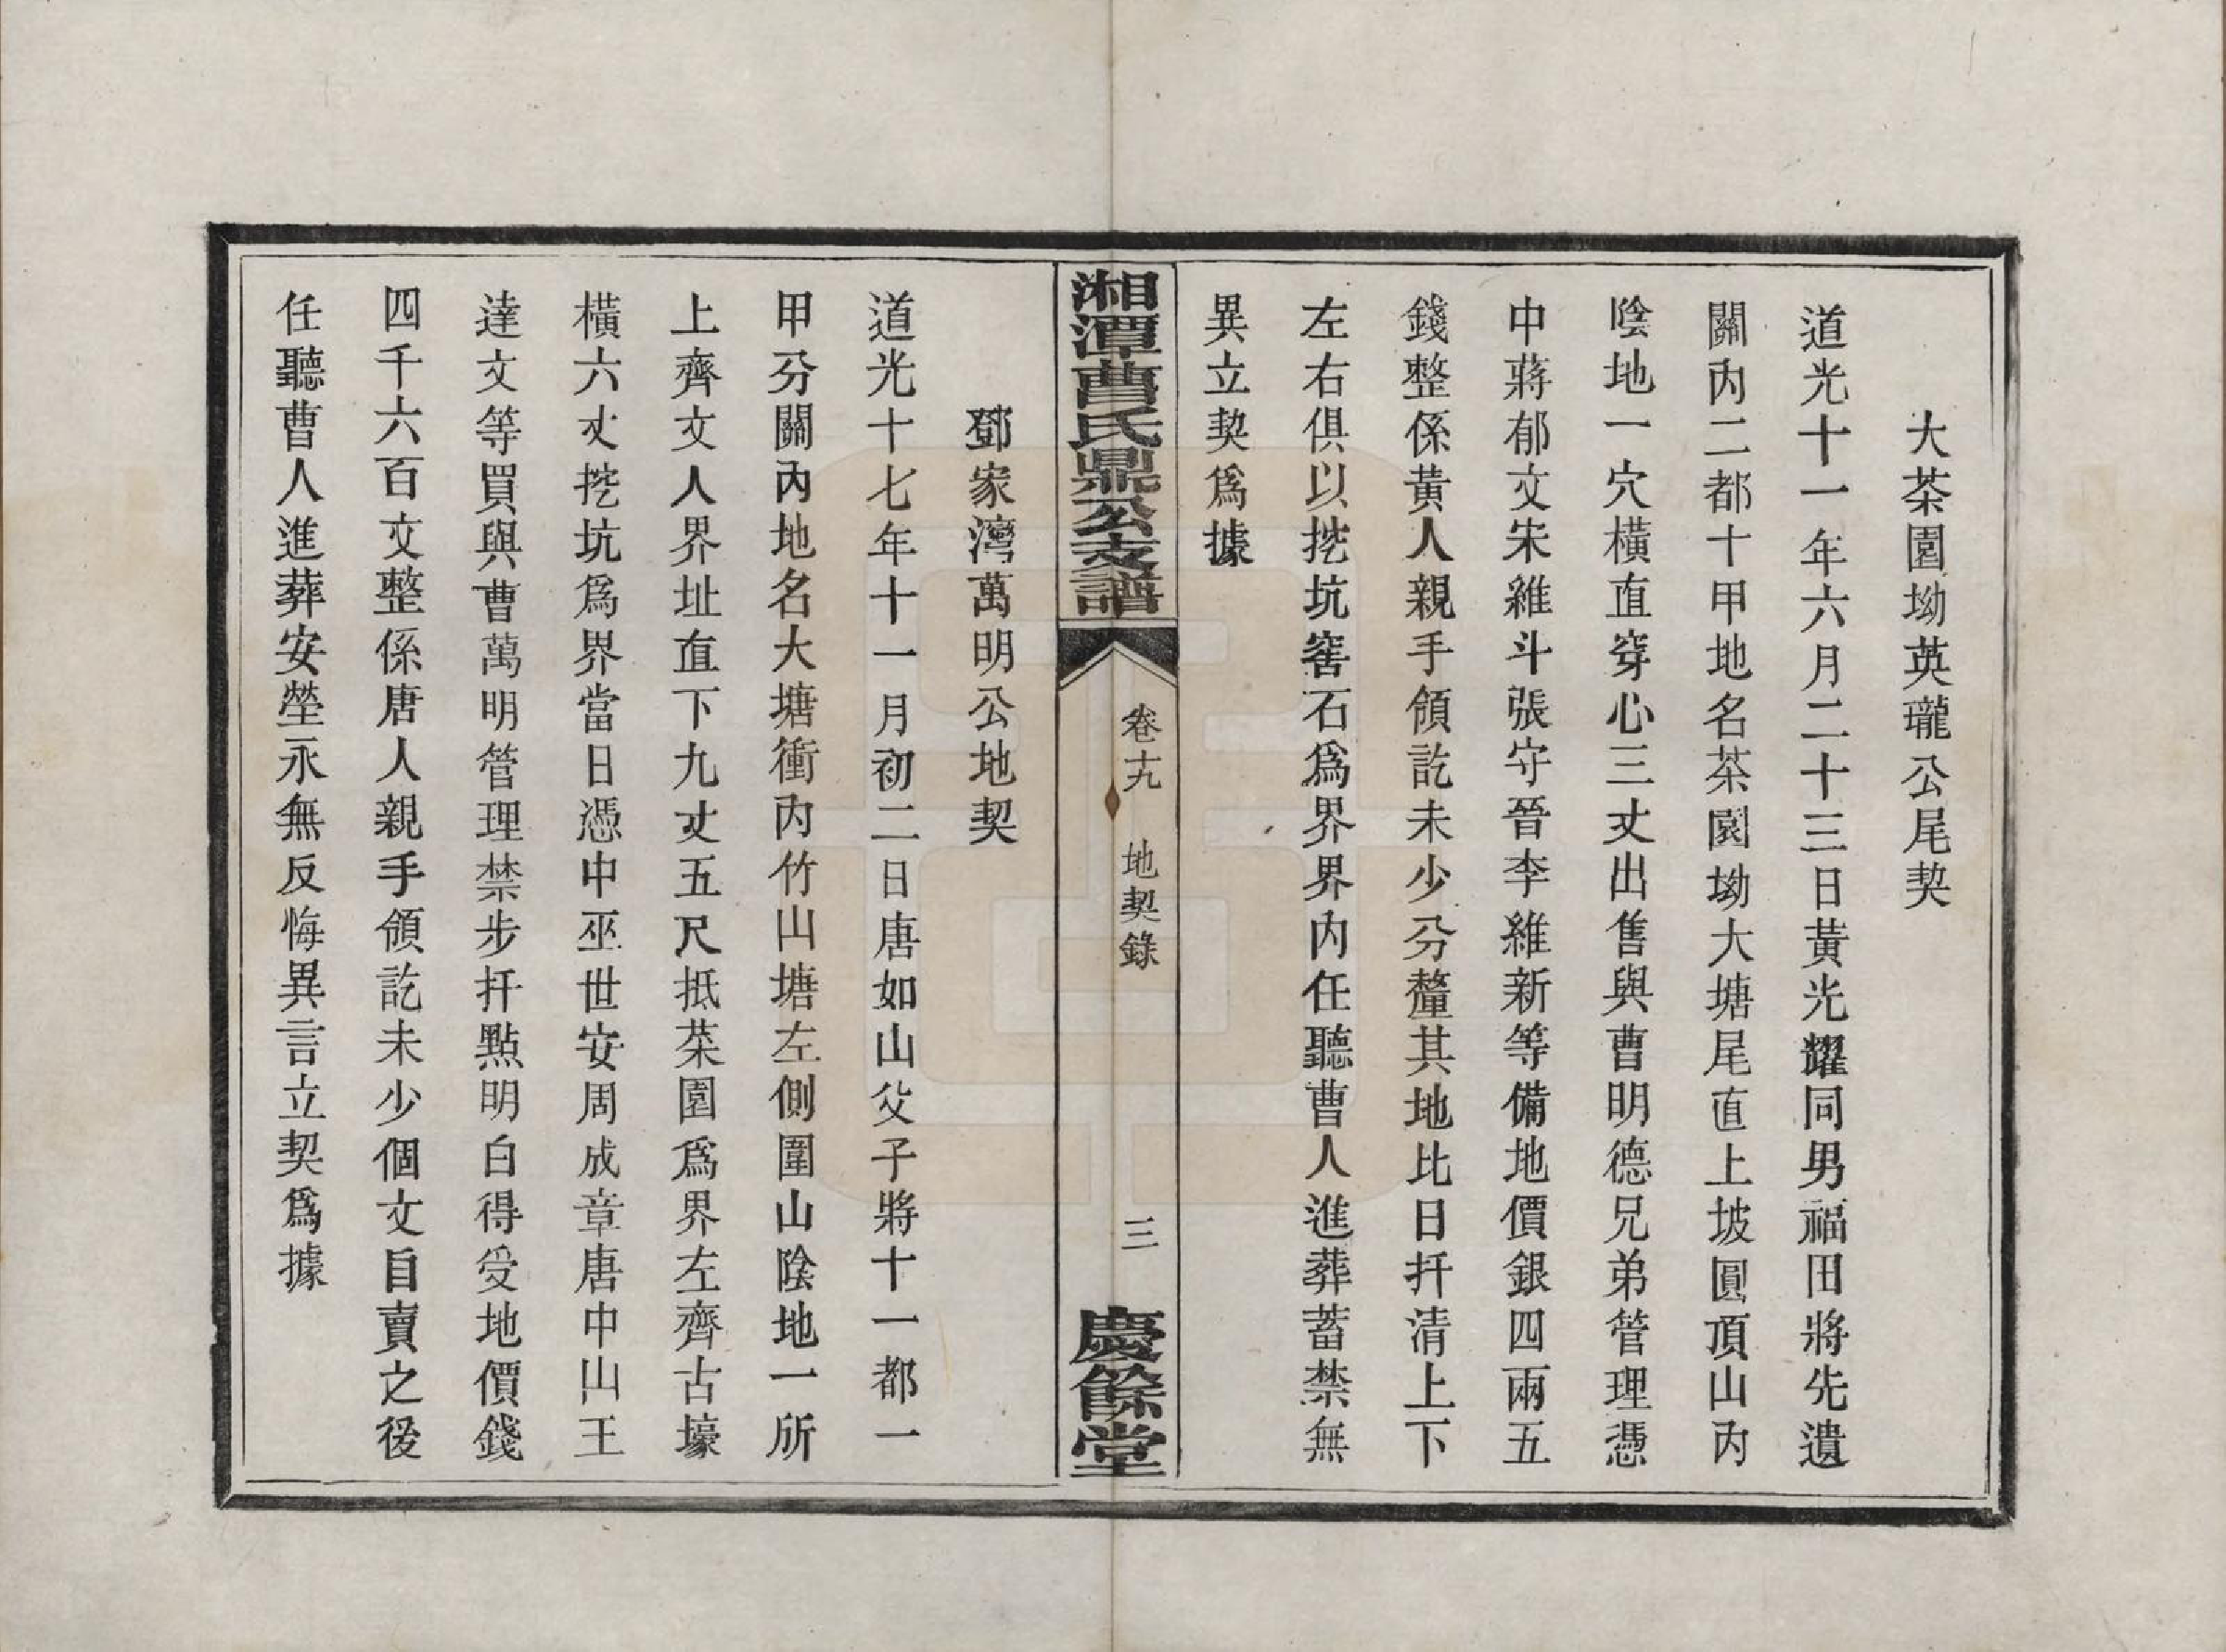 大茶園坳英瓏公尾契
道光十一年六月二十三日黃光耀同男福田將先遺
關內二都十甲地名茶園坳大塘尾直上坡圓頂山內
陰地一穴橫直穿心三丈出售與曹明德兄弟管理憑
中蔣郁文朱維斗張守晉李維新等備地價銀四兩五
錢整係黃人親手領訖未少分釐其地比日扦清上下
左右俱以挖坑窖石為界界內任聽曹人進葬蓄禁無
異立契為據
湘潭曹氏鼎公支譜
卷十九
地契錄
三
慶餘堂
鄧家灣萬明公地契
道光十七年十一月初二日唐如山父子將十一都一
甲分關內地名大塘衝內竹山塘左側圍山陰地一所
上齊文人界址直下九丈五尺抵茶園為界左齊古壕
橫六丈挖坑為界當日憑中巫世安周成章唐中山王
達文等買與曹萬明管理禁步扦點明白得受地價錢
四千六百文整係唐人親手領訖未少個文自賣之後
任聽曹人進葬安塋永無反悔異言立契為據